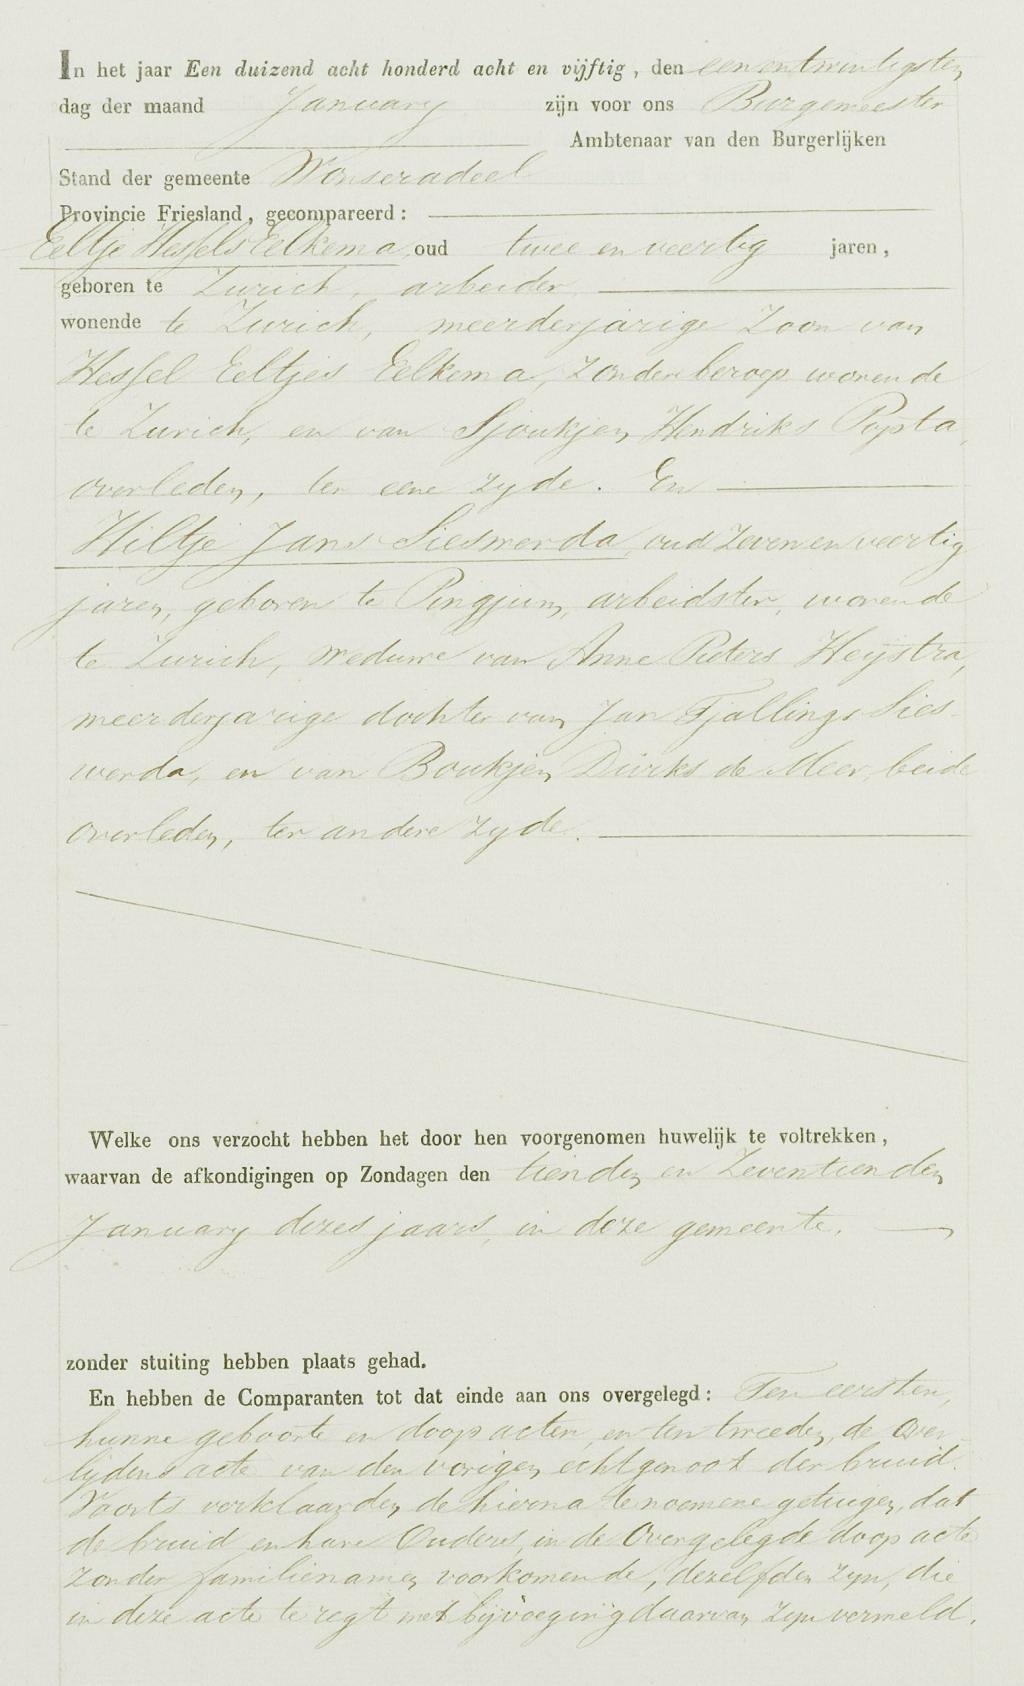 In het jaar Een duizend acht honderd acht en vijftig, den eenentwintigsten
dag der maand January zijn voor ons Burgemeester
Ambtenaar van den Burgerlijken
Stand der gemeente Wonseradeel
Provincie Friesland, gecompareerd:
Eeltje Hessels Eelkema, oud twee en veertig jaren,
geboren te Zurich, arbeider
wonende te Zurich, meerderjarige Zoon van
Hessel Eeltjes Eelkema, Zonder beroep wonende
te Zurich, en van Sjoukjen Hendriks Popta,
overleden, ter eene zyde. En
Hiltje Jans Sieswerda, oud Zeven en veertig
jaren, geboren te Pingjum, arbeidster, wonende
te Zurich, weduwe van Anne Pieters Heijstra,
meerderjarige dochter van Jan Tjallings Sies-
werda, en van Boukjen Durks de Meer, beide
overleden, ter andere zyde.
Welke ons verzocht hebben het door hen voorgenomen huwelijk te voltrekken,
waarvan de afkondigingen op Zondagen den tienden en Zeventienden
January dezes jaars, in deze gemeente.
zonder stuiting hebben plaats gehad.
En hebben de Comparanten tot dat einde aan ons overgelegd: Ten eersten,
hunne geboorte en doop acten, en ten tweeden, de Over-
lijdens acte van den vorigen echtgenoot der bruid.
Voorts verklaarden de hierna te noemene getuigen, dat
de bruid en hare Ouders, in de Overgelegde doop acte
zonder familienamen voorkomende, dezelfden zyn, die
in deze acte te regt met bijvoeging daarvan zyn vermeld.